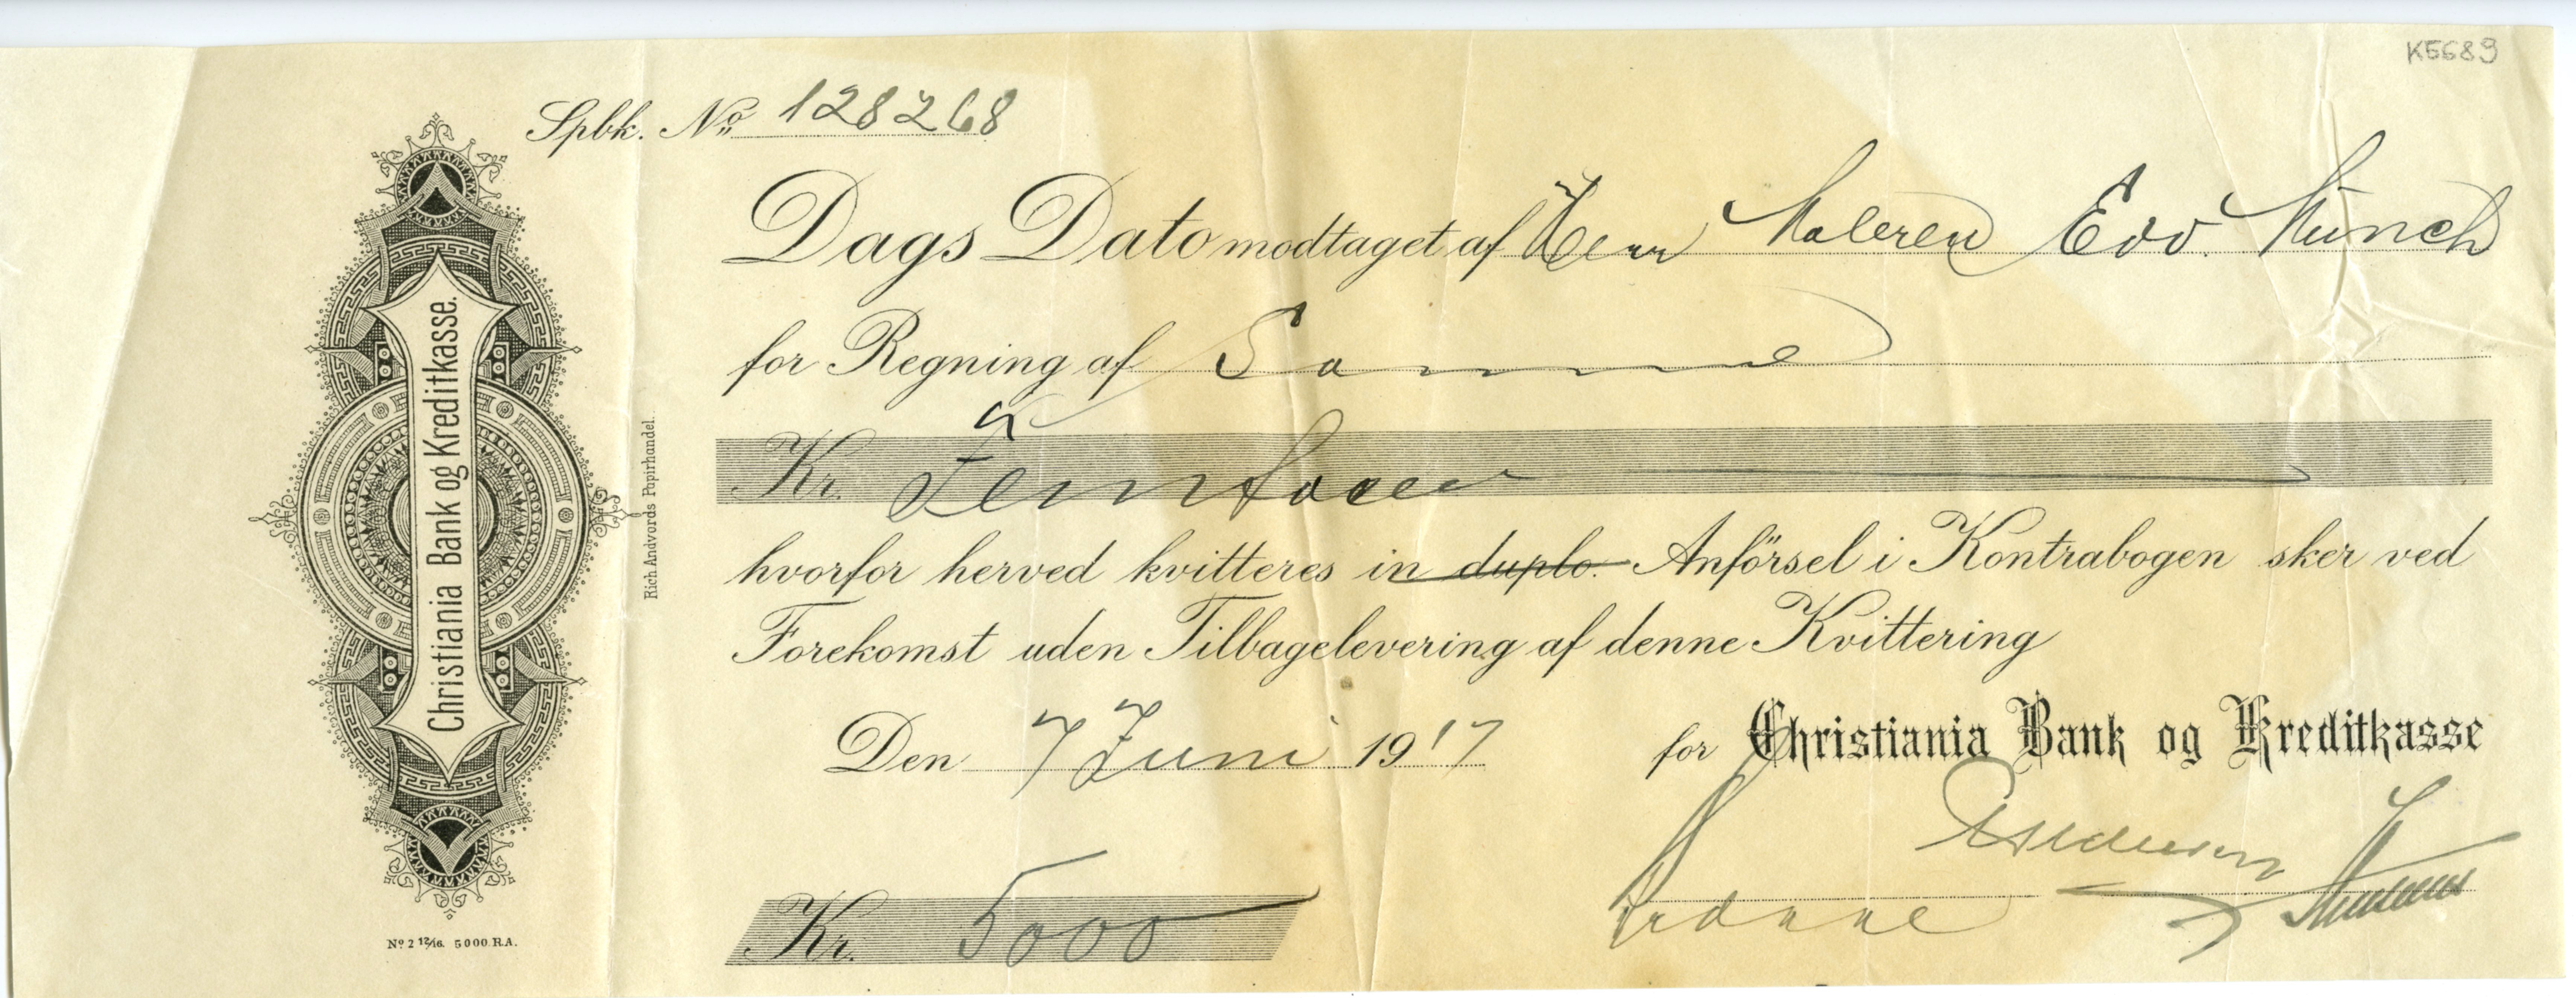 K5689
Spbk. No 128268
Dags Dato modtaget af Herr Maleren Edv. Munch
for Regning af Samme
Kr. Femtusen
hvorfor herved kvitteres in duplo. Anförsel i Kontrabogen sker ved
Forekomst uden Tilbagelevering af denne Kvittering
Den 7 Juni 1917
for Christiania Bank og Kreditkasse
Kr. 5000
Christiania Bank og Kreditkasse.
Rich Andvords Papirhandel.
No 2 12/16. 5000 R.A.